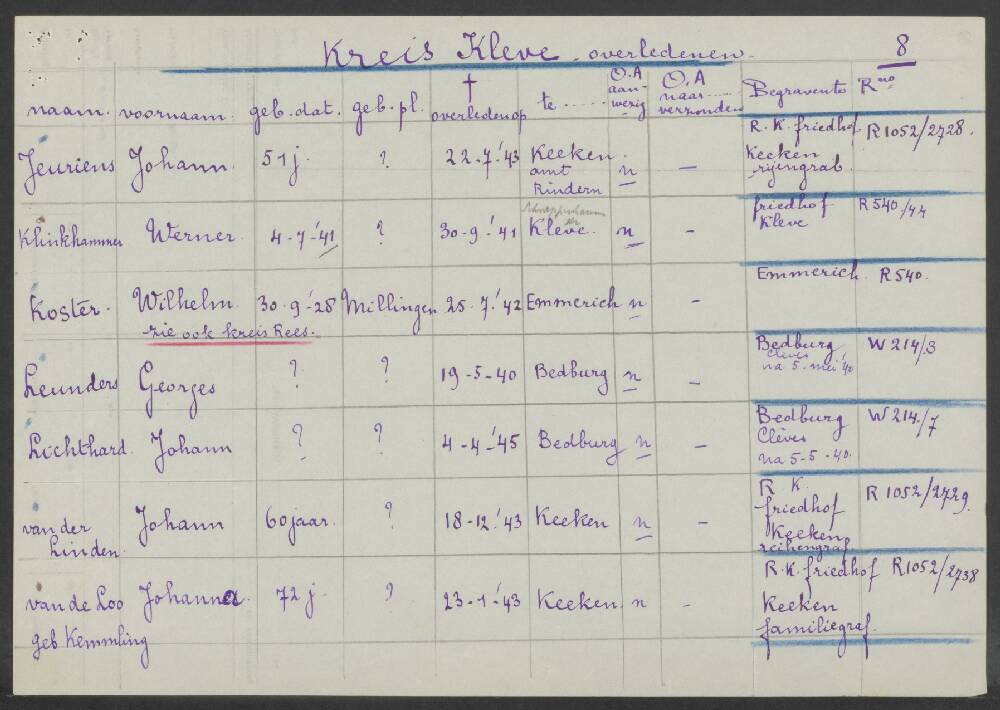 Kreis Kleve overledenen. 8
naam. voornaam. geb. dat. geb. pl. † overleden op te ...... O.A aan-wezig O.A naar ...... verzonden Begraven te R no
Jeuriens Johann. 51 j. ? 22-7-'43 Keeken. amt Rindern n — R.K. friedhof Keeken rijengrab. R1052/2728.
Klinkhammer Werner. 4-7-'41 ? 30-9-'41 Kleve. n — friedhof Kleve R540/44
Koster. Wilhelm. 30-9-'28 Millingen 25-7-'42 Emmerich n — Emmerich. R540.
zie ook kreis Rees.
Leunders Georges ? ? 19-5-40 Bedburg n — Bedburg Cleves na 5-mei '40 W214/3
Lichthard. Johann ? ? 4-4-'45 Bedburg n — Bedburg Clèves na 5-5-40. W214/7
van der Linden. Johann 60 jaar. ? 18-12-'43 Keeken n — R K. friedhof Keeken reihengraf. R1052/2729.
van de Loo Johanna 72 j. ? 23-1-'43 Keeken. n — R.K. friedhof Keeken familiegraf. R1052/2738
geb Kemmling